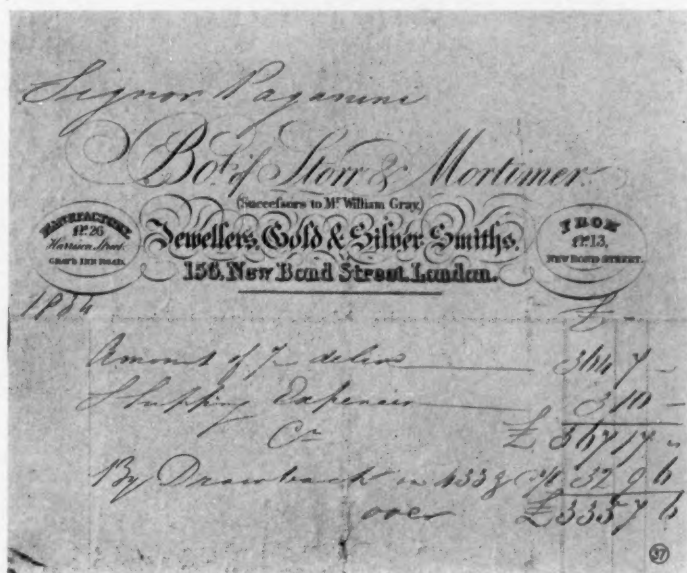 Signor Paganini
Bot. of Storr & Mortimer.
(Successors to Mr. William Gray)
MANUFACTORY,
No. 26
Harrison Street,
GRAY'S INN ROAD.
Jewellers, Gold & Silver Smiths,
156, New Bond Street, London.
FROM
No. 13,
NEW BOND STREET.
1834 £
Amount of 364 7 -
Shipping Expences 3 10 -
Cr £ 367 17 -
By Drawback on 433 1/6 32 9 6
over £335 7 6
97